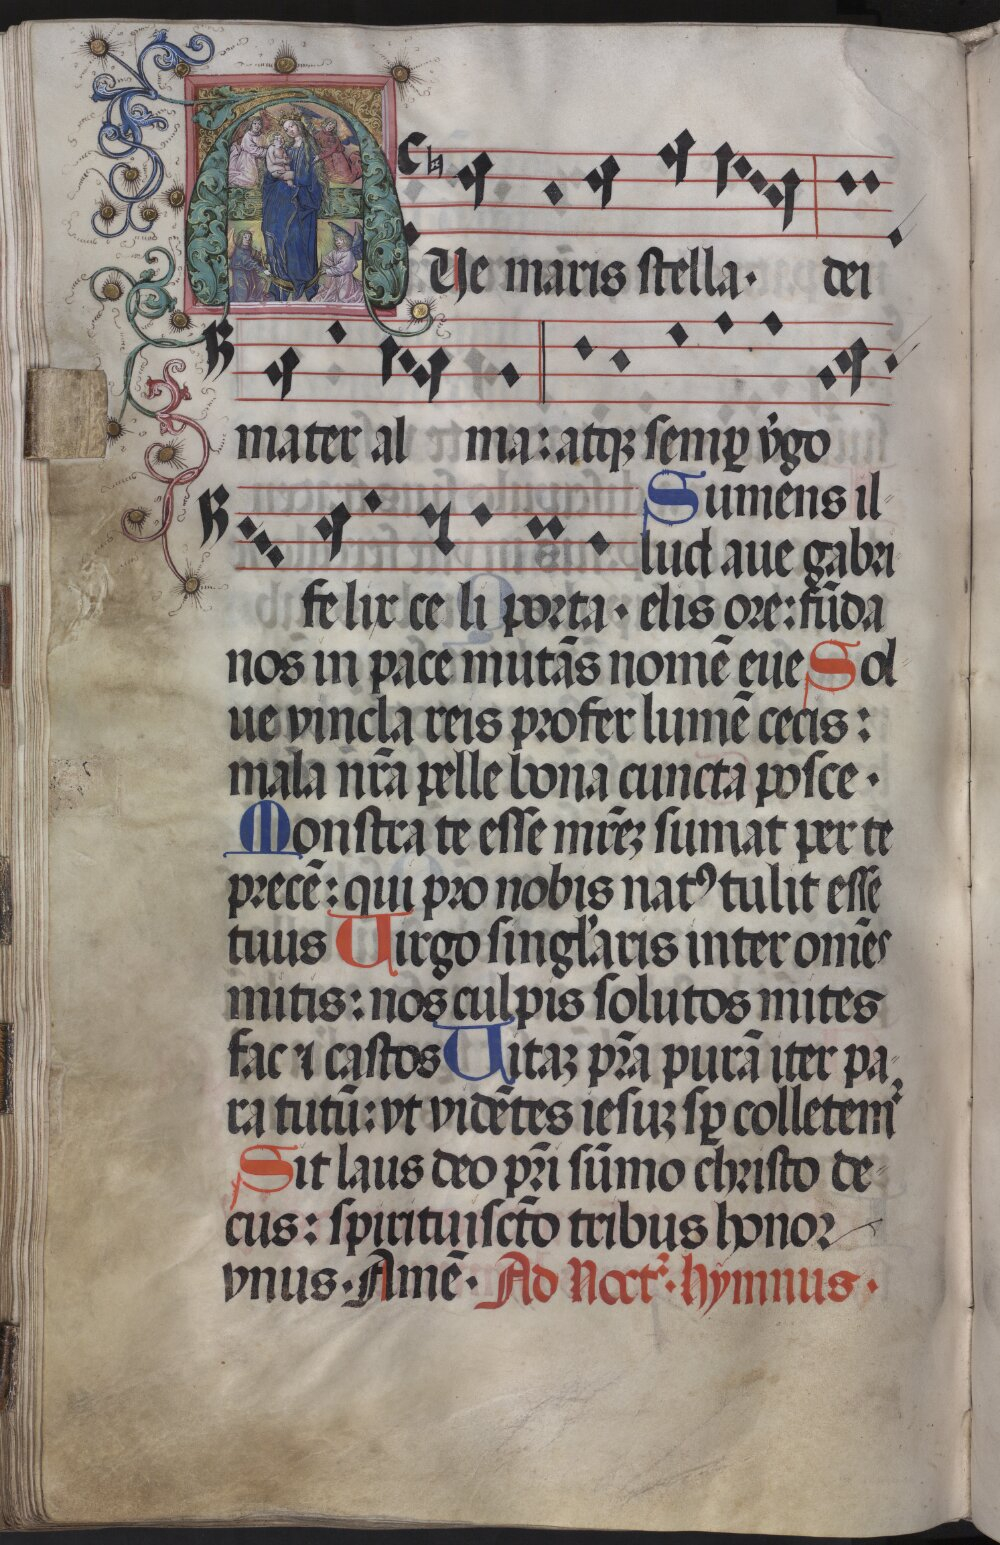 AUe maris stella· dei
mater al ma: atqꝫ semꝑ v̾go
Sumens il
lud aue gabri
fe lix ce li porta· elis ore: fūda
nos in pace mutās nomē eue Sol
ue vincla reis profer lumē cecis:
mala nr̄a pelle bona cuncta posce·
Monstra te esse mr̄eꝫ sumat per te
precē: qui pro nobis natꝰ tulit esse
tuus Uirgo singl'aris inter om̄es
mitis: nos culpis solutos mites
fac ⁊ castos Uitaꝫ pr̄a purā iter pa
ra tutū: vt vidētes iesuꝫ sꝑ colletem᷑
Sit laus deo pr̄i sūmo christo de
cus: spiritui sct̄o tribus honor
vnus· Amē· Ad Noct᷑· hymnus·